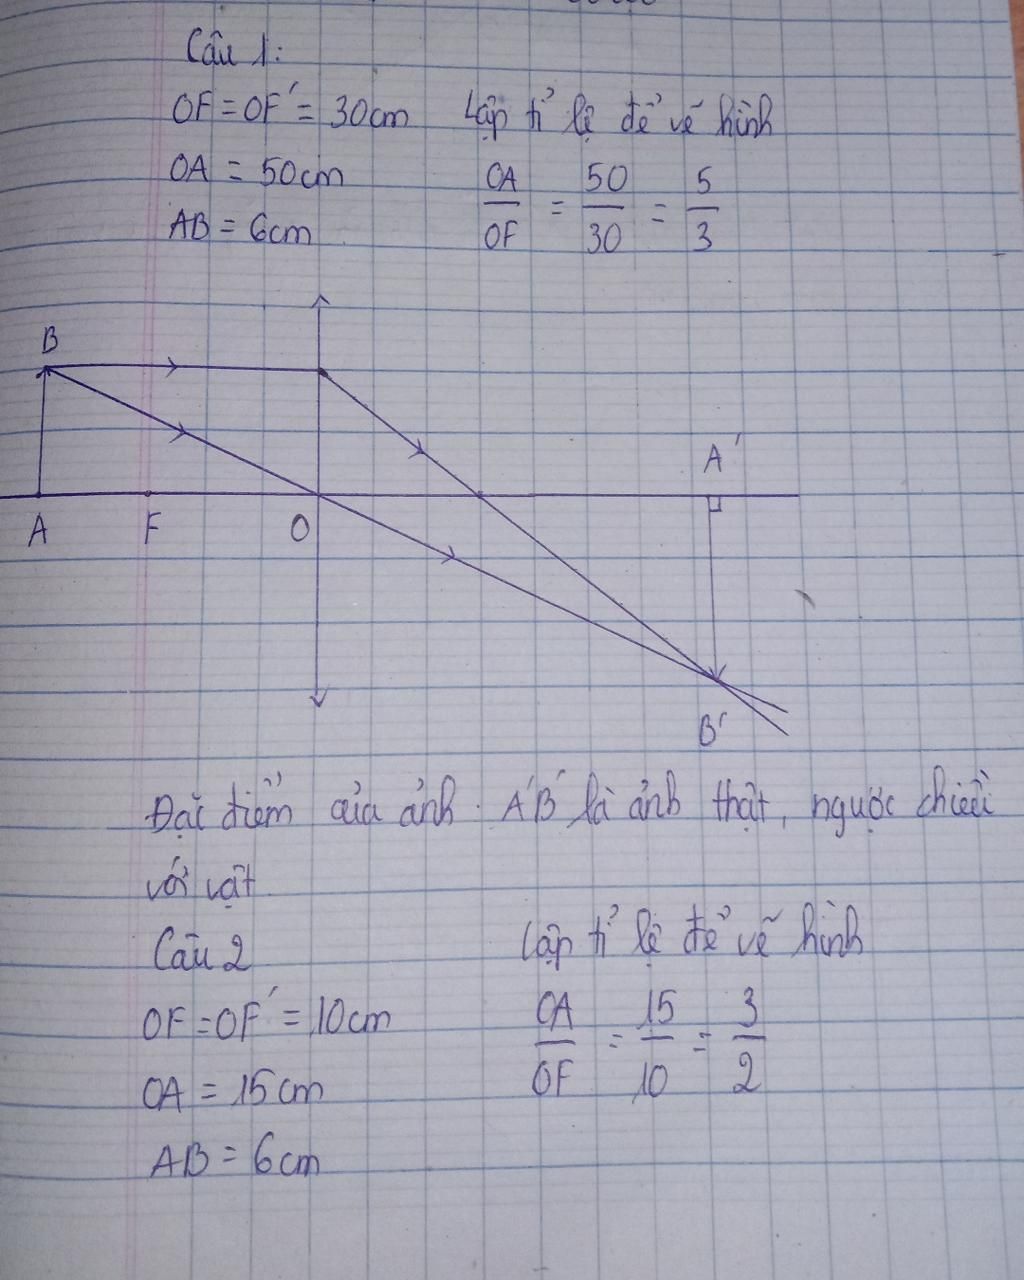 Câu 1:
OF = OF' = 30cm Lập tỉ lệ để vẽ hình
OA = 50cm OA/OF = 50/30 = 5/3
AB = 6cm
B
A'
A F O
B'
Đặc điểm của ảnh. A'B' là ảnh thật, ngược chiều
với vật
Câu 2 Lập tỉ lệ để vẽ hình
OF = OF' = 10cm OA/OF = 15/10 = 3/2
OA = 15cm
AB = 6cm